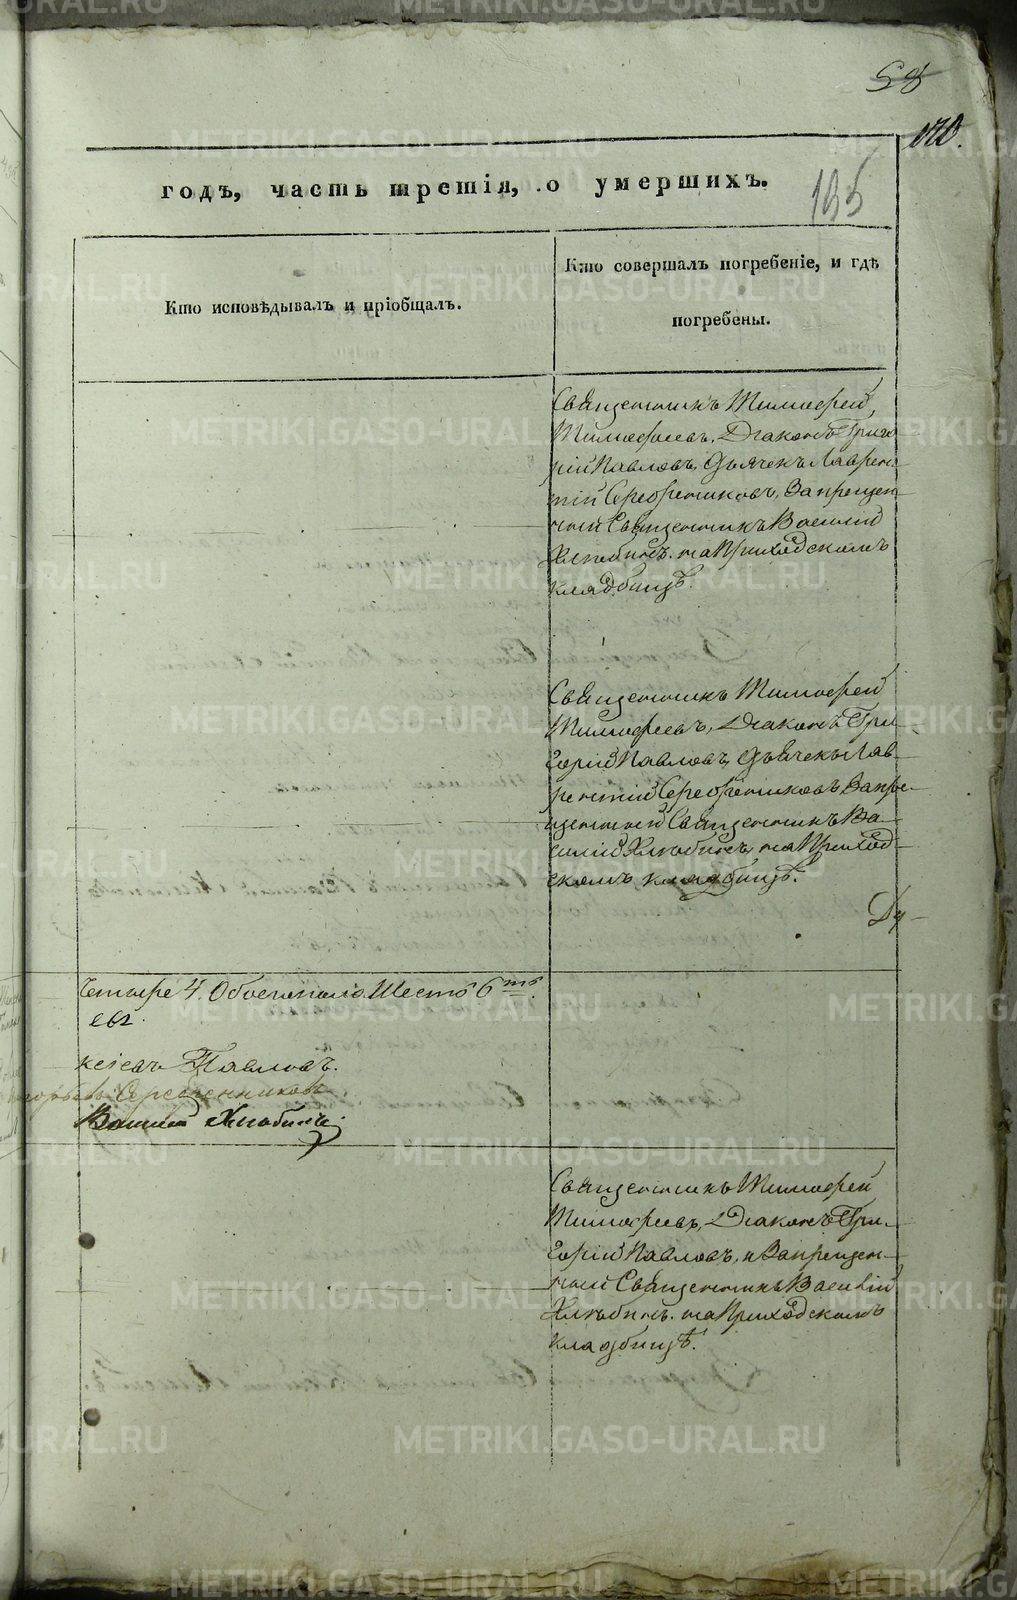 58
170.
195
годъ, часть третія, о умершихъ.
Кто исповѣдывалъ и пріобщалъ.
Кто совершалъ погребеніе, и гдѣ
погребены.
Священникъ Тимофей
Тимофеевъ, Діаконъ Григо
рій Павловъ, Дьячекъ Лаврен-
тій Серебрениковъ, Запрещен-
ной Священникъ Василій
Хлѣбинъ. на Приходскомъ
кладбищѣ.
Священникъ Тимофей
Тимофеевъ, Діаконъ Гри-
горій Павловъ, Дьячекъ Лав-
рентій Серебрениковъ Запре-
щенной Священникъ Ва-
силій Хлѣбинъ, на Приход-
скомъ кладбищѣ.
Ду-
Четыре 4. Обоегополо Шесть 6ть
евъ Павловъ.
Серебренниковъ
Василій Хлѣбинъ
Священникъ Тимофей
Тимофеевъ, Діаконъ Гри-
горій Павловъ, и Запрещен-
ной Священникъ Василій
Хлѣбинъ. на Приходскомъ
кладбищѣ.
METRIKI.GASO-URAL.RU